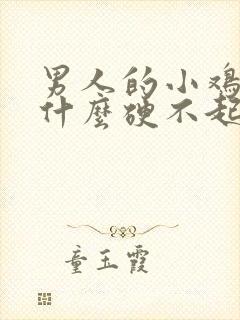 男人的小鸡
什麼硬不起
童玉霞